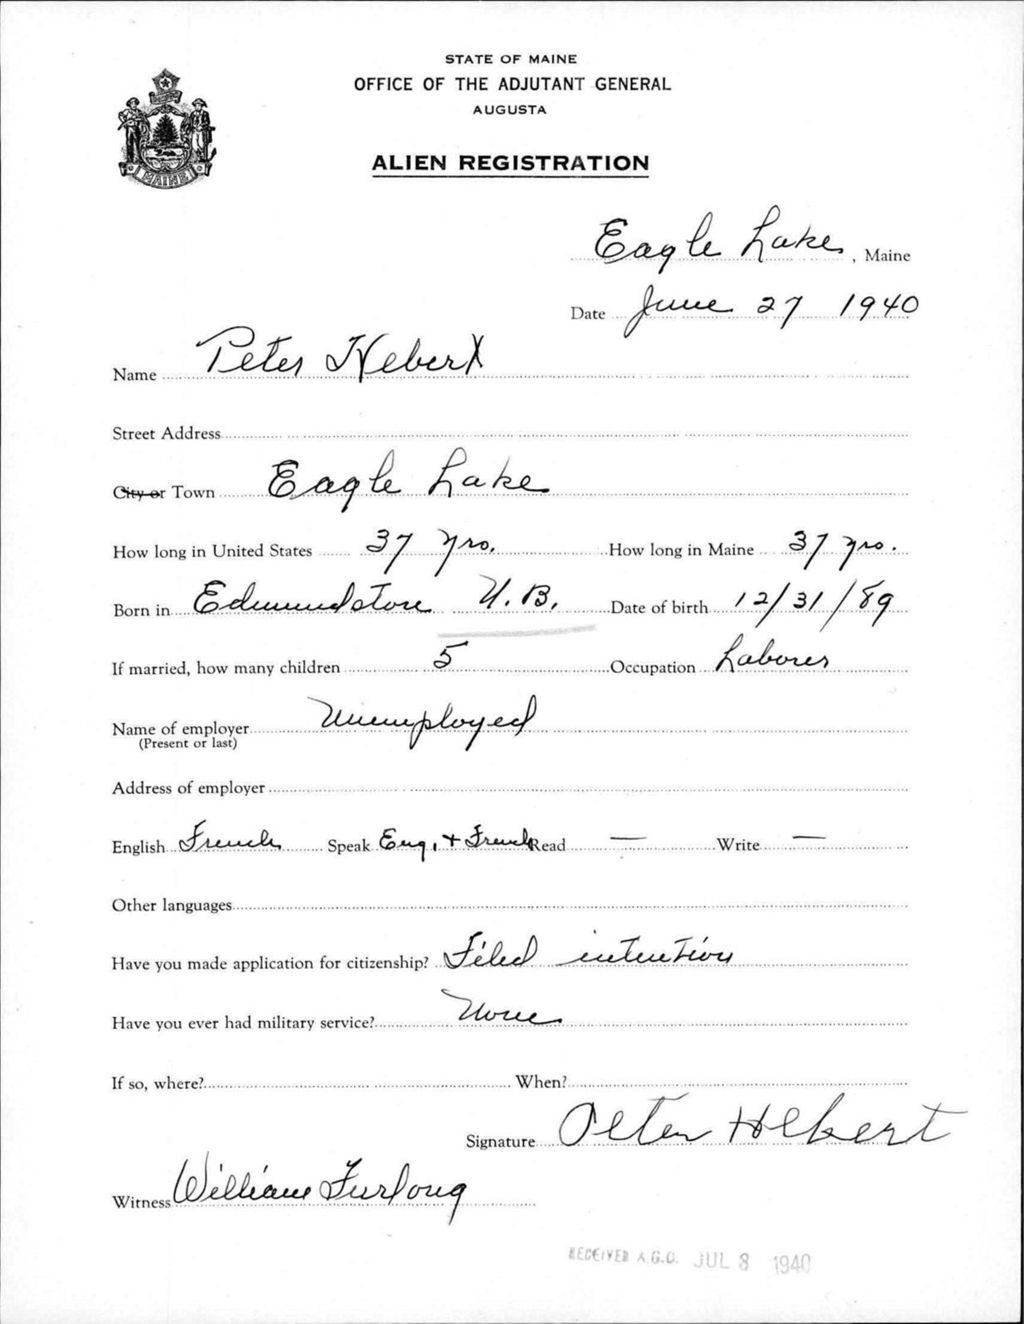 STATE OF MAINE
OFFICE OF THE ADJUTANT GENERAL
AUGUSTA
ALIEN REGISTRATION
MAINE
Eagle Lake, Maine
Date June 27 1940
Name Peter Hebert
Street Address
City or Town Eagle Lake
How long in United States 37 yrs. How long in Maine 37 yrs.
Born in Edmundston N.B. Date of birth 12/31/89
If married, how many children 5 Occupation Laborer
Name of employer Unemployed
(Present or last)
Address of employer
English French Speak Eng. + French Read — Write —
Other languages
Have you made application for citizenship? Filed intention
Have you ever had military service? None
If so, where? When?
Signature Peter Hebert
Witness William Furlong
RECEIVED A.G.O. JUL 8 1940